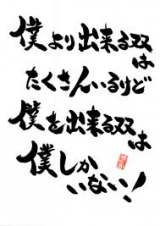 僕より出来る奴
は
たくさんいるけど
僕を出来る奴は
僕しか
いない!